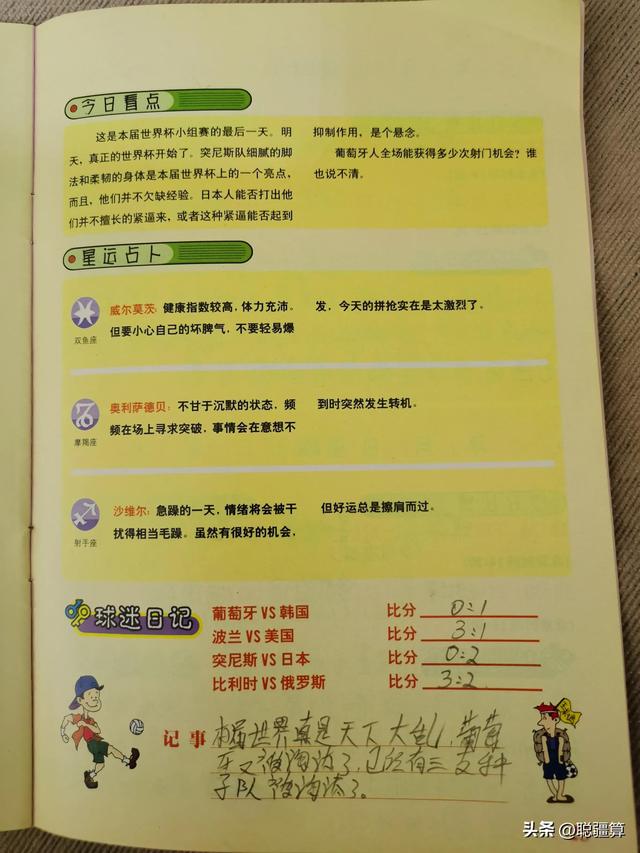 今日看点
这是本届世界杯小组赛的最后一天。明
天，真正的世界杯开始了。突尼斯队细腻的脚
法和柔韧的身体是本届世界杯上的一个亮点，
而且，他们并不欠缺经验。日本人能否打出他
们并不擅长的紧逼来，或者这种紧逼能否起到
抑制作用，是个悬念。
葡萄牙人全场能获得多少次射门机会？谁
也说不清。
星运占卜
双鱼座
威尔莫茨：健康指数较高，体力充沛。
但要小心自己的坏脾气，不要轻易爆
发，今天的拼抢实在是太激烈了。
摩羯座
奥利萨德贝：不甘于沉默的状态，频
频在场上寻求突破，事情会在意想不
到时突然发生转机。
射手座
沙维尔：急躁的一天，情绪将会被干
扰得相当毛躁。虽然有很好的机会，
但好运总是擦肩而过。
球迷日记
葡萄牙 VS 韩国 比分 0:1
波兰 VS 美国 比分 3:1
突尼斯 VS 日本 比分 0:2
比利时 VS 俄罗斯 比分 3:2
记事 本届世界真是天下大乱，葡萄
牙又被淘汰了，已经有三支种
子队被淘汰了。
头条 @聪疆算